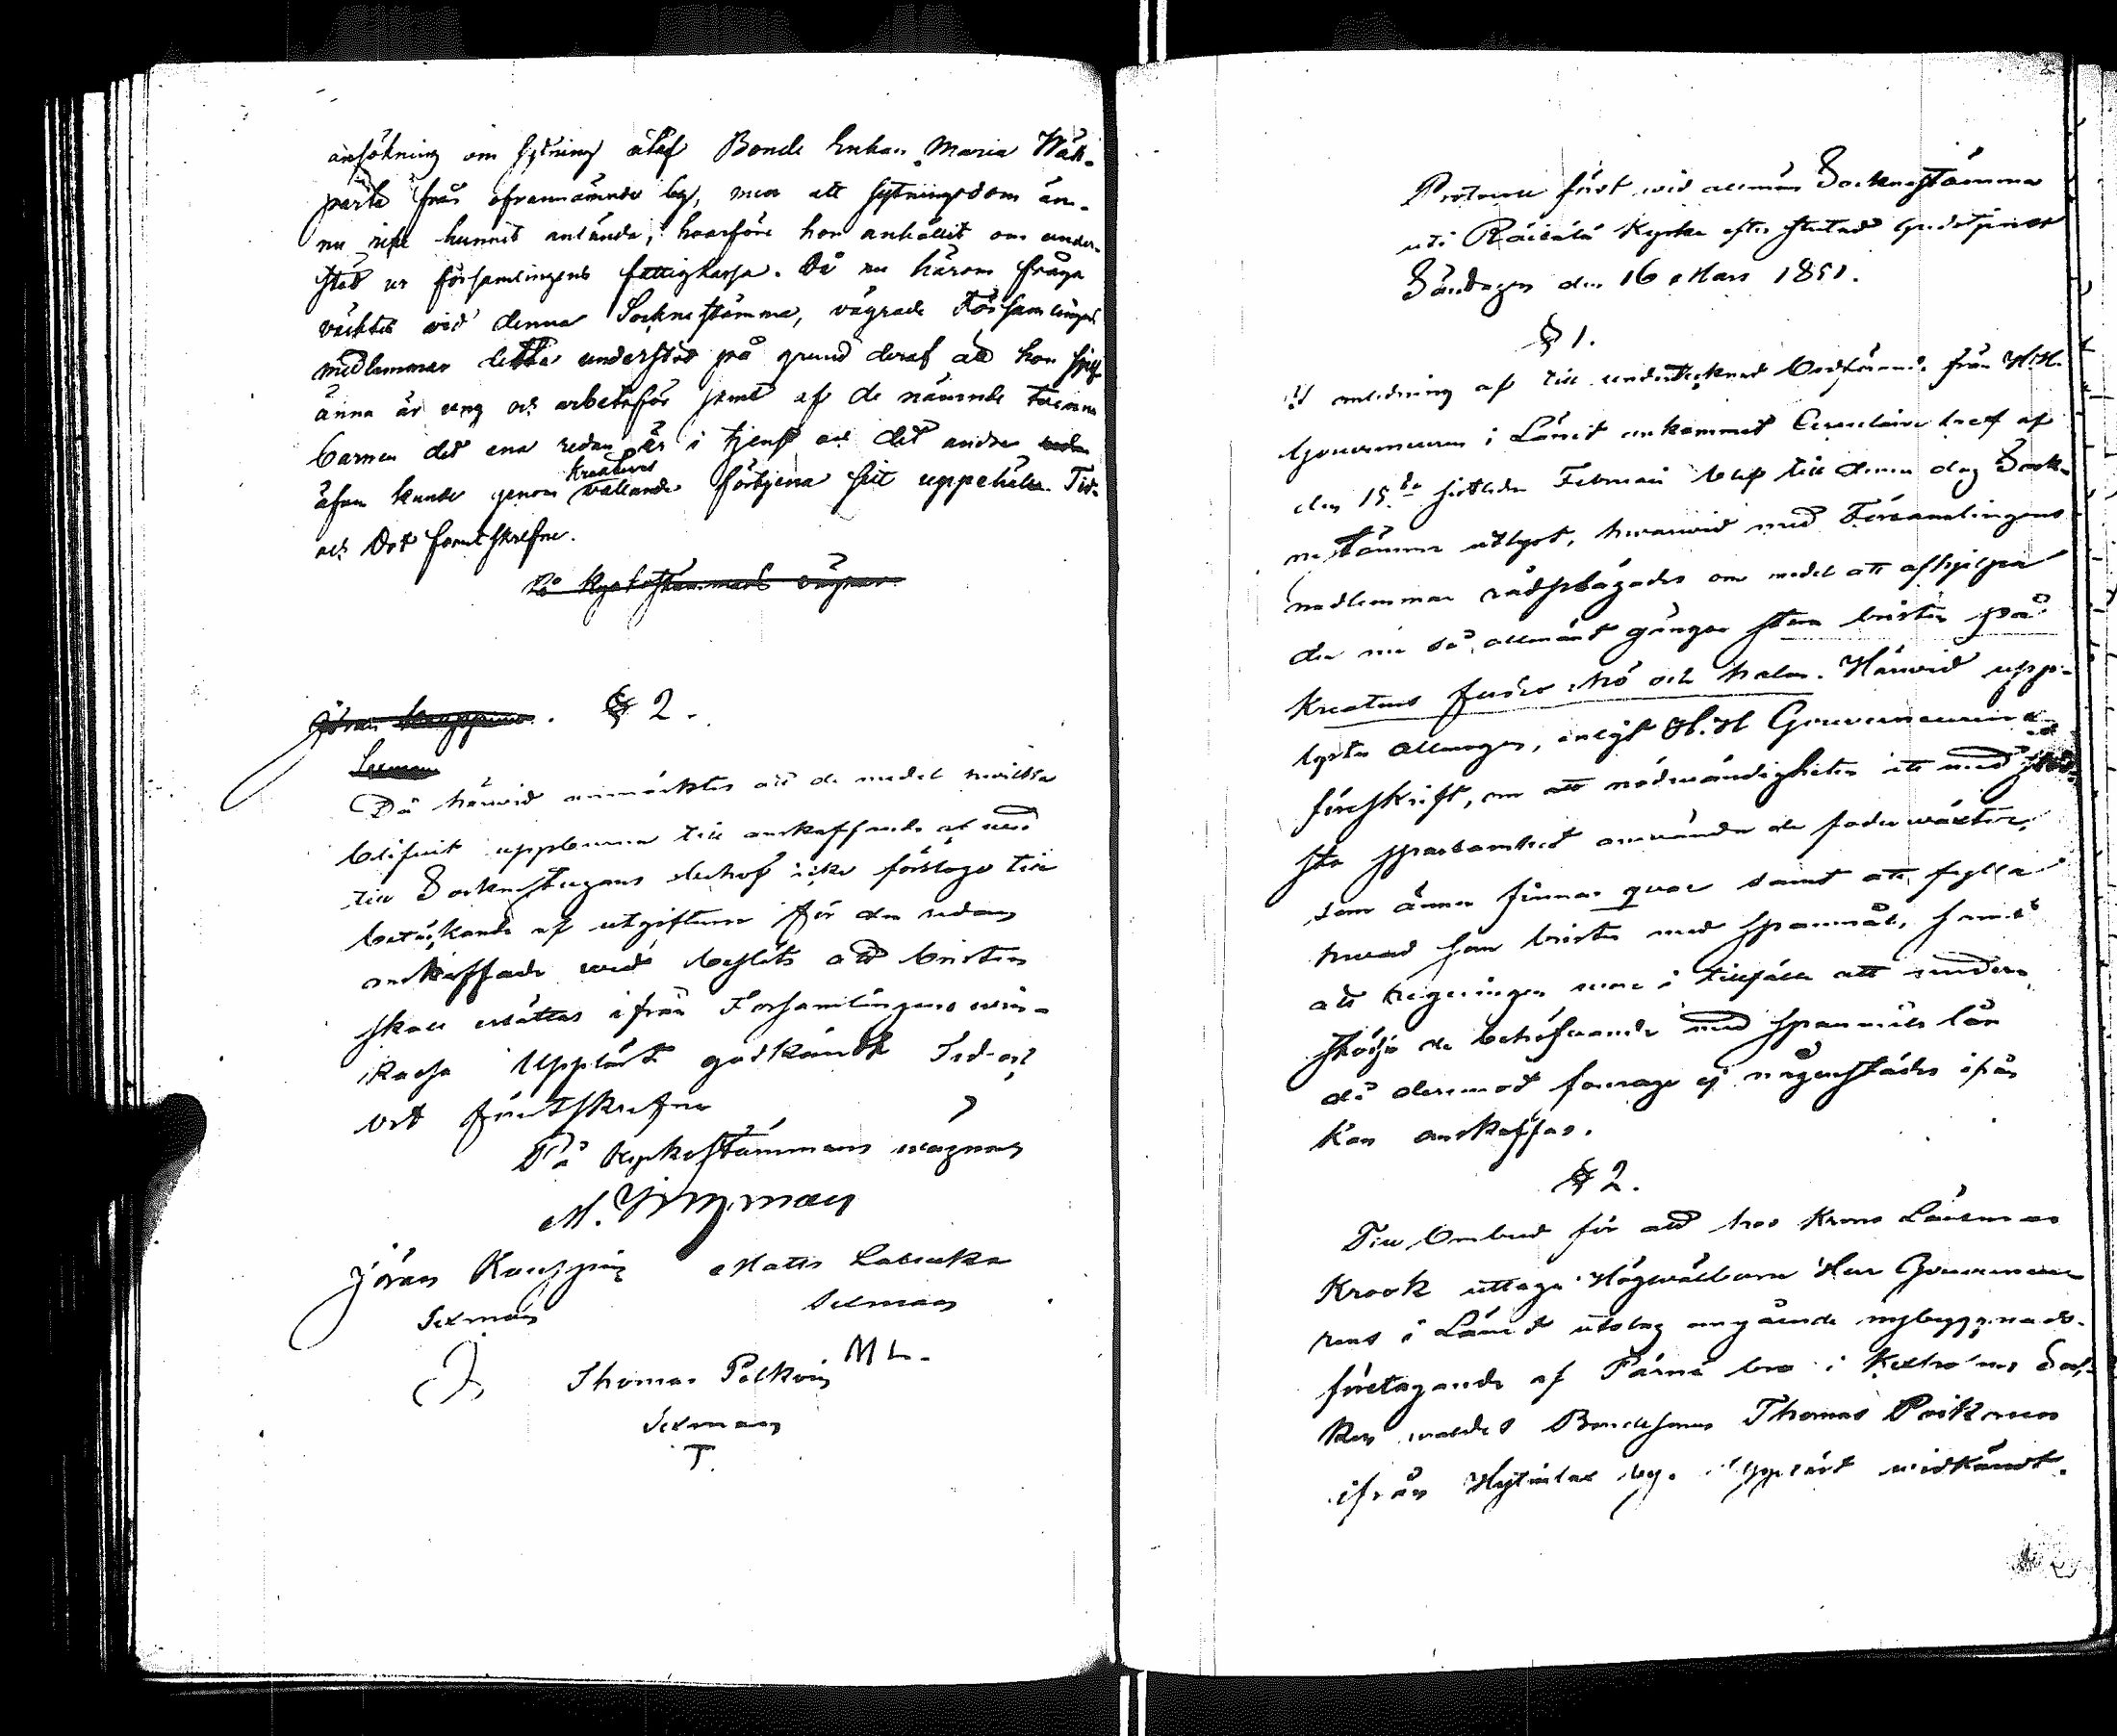 ansökning om sytning af Bonde Enkan Maria Wäk-
parta från ofvannämnde by, men att sytningsdom än-
nu icke hunnit anlända, hvarföre hon anhållit om under-
stöd ur församlingens fattigkassa. Då nu härom fråga
väcktes vid denna Sockne stämma, vägrade Församlingens
medlemmar detta understöd på grund deraf att hon sjelf
änna är ung och arbetsför samt af de nämnde tvenne
barnen det ena redan är i tjenst och det andra
äfven kunde genom kreaturs vallande förtjena sit uppehälle. Tid-
och Ort förutskrefne.
På Kyrkostämmans vägnar
Göran Kauppinen. § 2.
Sexman
Då härvid anmärktes att de medel hvilka
blifvit uppburna till anskaffande af ved
till Sockenstugans behof icke förslogo till
betäckande af utgifterna för den redan
anskaffade ved beslöts att bristen
skall ersättas ifrån Församlingens vin-
kassa Uppläst godkändt Tid och
ort förutskrefne
På Kyrkostämmans vägnar
M.
Göran Kauppin Matts
Sexman Sexman
Thomas Pelkoin M L.
Sexman
T.
Protocoll fördt wid allmän Sockenstämma
uti Räisälä Kyrka efter slutad gudstjenst
Söndagen den 16 Mars 1851.
§ 1.
I anledning af till undertecknad Ordförande från H.H.
Gouverneuren i Länet ankommet Circulaire bref af
den 15de sistledne Februari blef till denna dag Sock-
nestämma utlyst, hvarwid med Församlingens
medlemmar rådplägades om medel att afhjelpa
den nu så allmänt gångna stora bristen på
kreaturs foder hö och halm. Härwid upp-
lystes Allmogen, enligt H.H Gouverneurens
föreskrift, om att nödwändigheten att med
sta sparsamhet använda de foderwäxter,
som ännu finnas qvar samt att fylla
hwad som brister med spanmål, samt
att regeringen vore i tillfälle att under-
stödja de behöfwande med spanmåls lån
då deremot fourage ej någonstädes ifrån
kan anskaffas.
§ 2.
Till Ombud för att hos Krono Länsman
Krook uttaga Högwälborne Herr Gouverneu-
rens i Länet utslag angående nybyggnads-
företagande af Pärnä bro i Kexholms Sock-
ken waldes Bondesonen Thomas Poikonen
ifrån Hytinlax by. Uppläst widkändt.